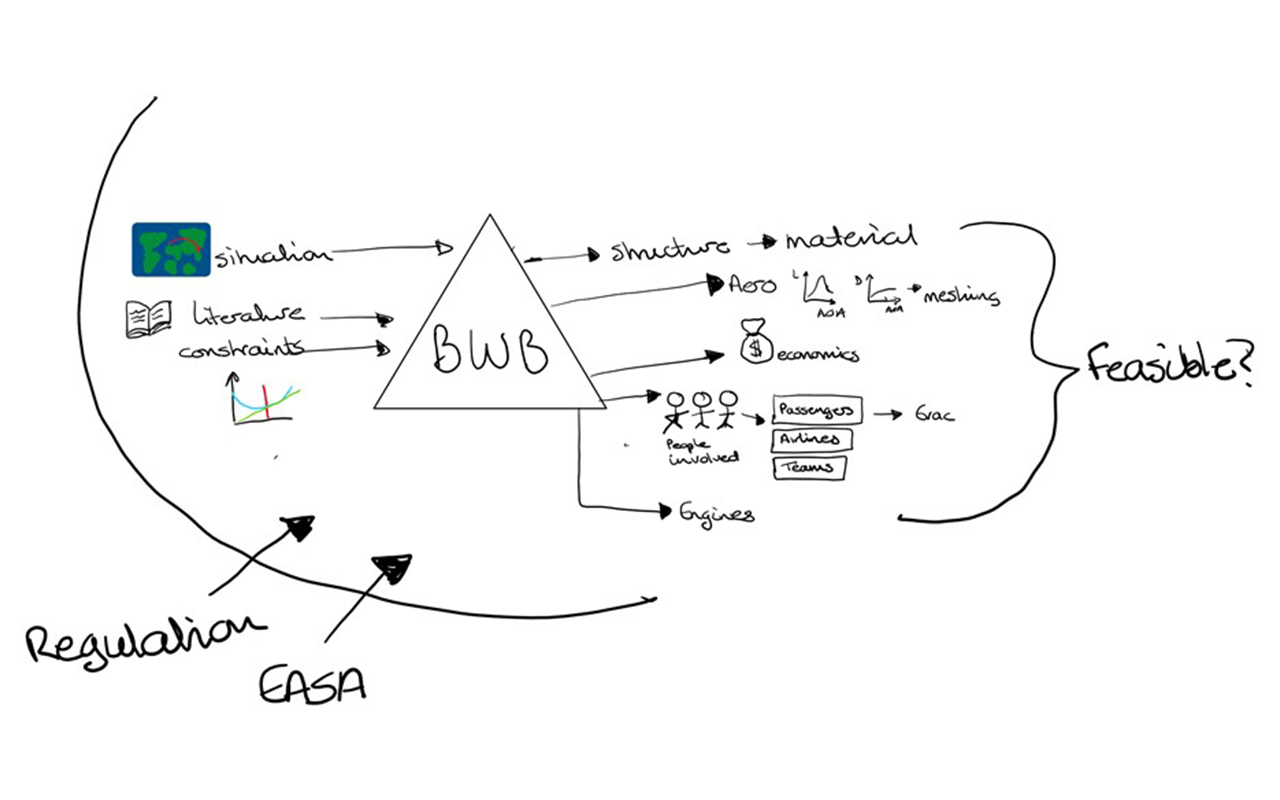 situation
Literature
constraints
BWB
structure
material
Aero
L
AOA
D
AOA
meshing
$
economics
People
involved
Passengers
Airlines
Teams
Engines
Feasible?
Regulation
EASA